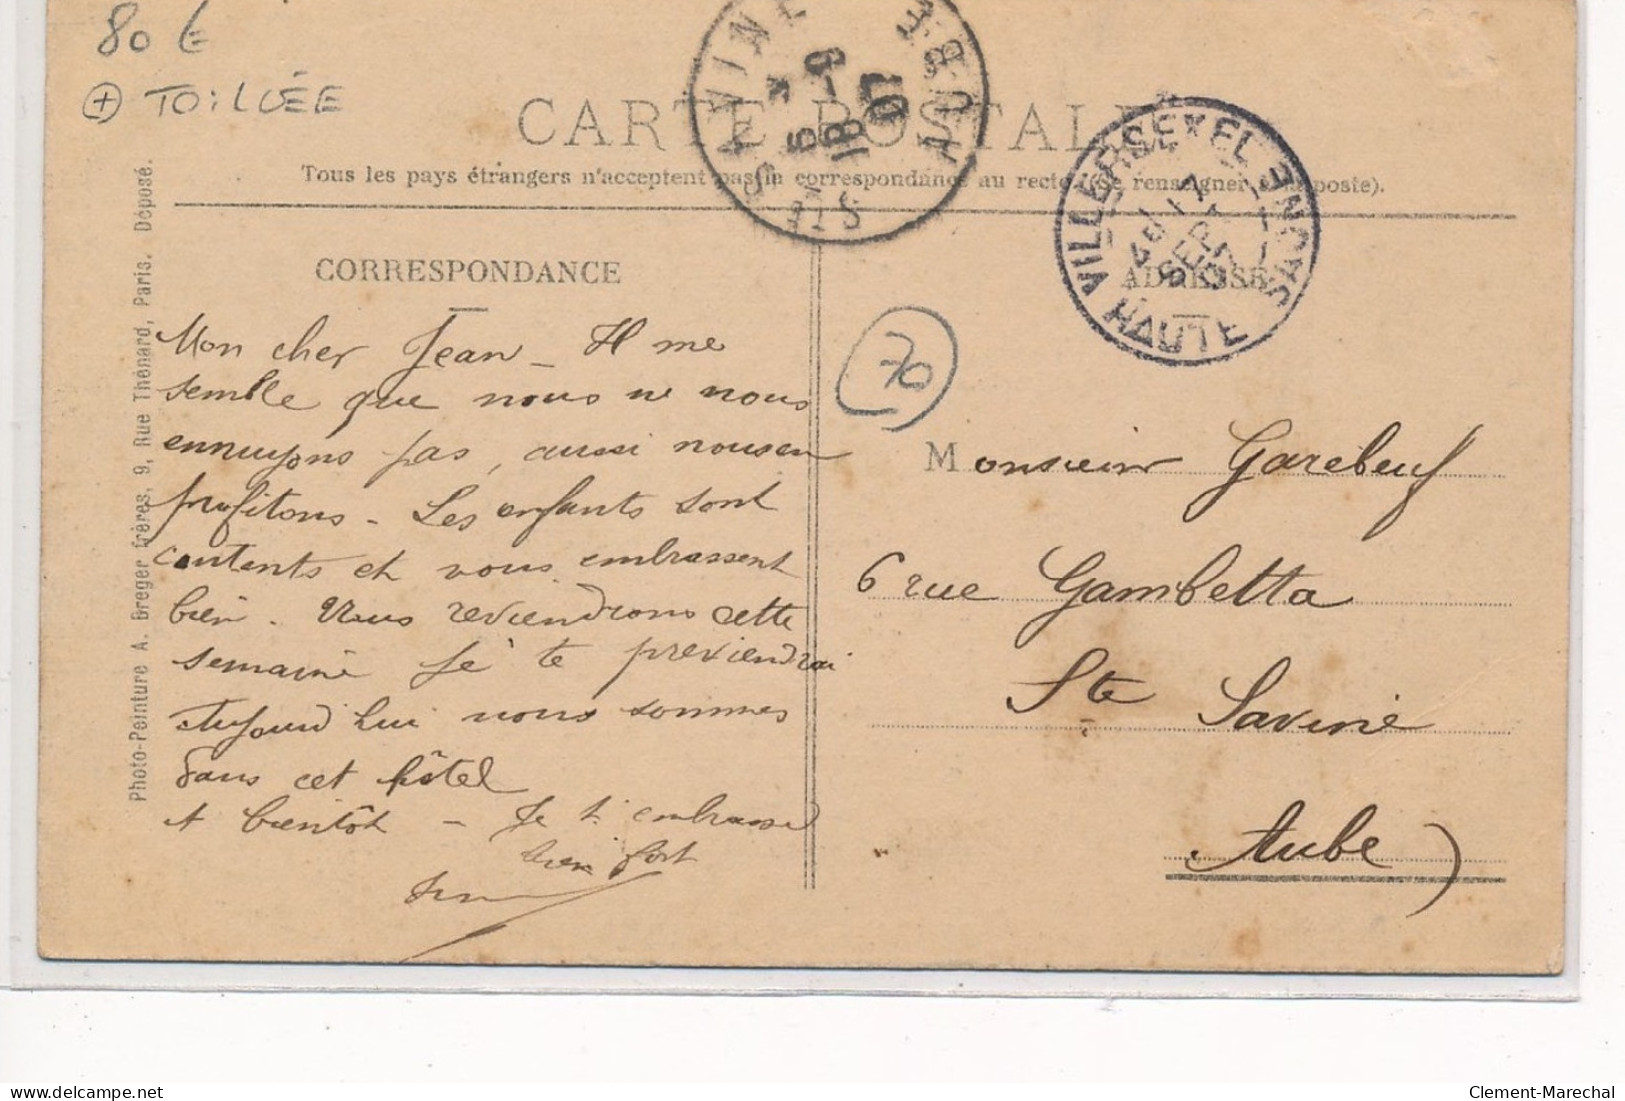 80 €
+ TOILÉE
CARTE POSTALE
Tous les pays étrangers n'acceptent pas la correspondance au recto (se renseigner à la poste).
STE SAVINE AUBE
18 -9
07
VILLERSEXEL HAUTE SAONE
17
SEPT
07
CORRESPONDANCE
ADRESSE
70
Mon cher Jean _ Il me
semble que nous ne nous
ennuyons pas, aussi nous en
profitons - Les enfants sont
contents et vous embrassent
bien. Nous reviendrons cette
semaine je te previendrai
Aujourd'hui nous sommes
dans cet hôtel
A bientôt - Je t'embrasse
bien fort
Monsieur Garebeuf
6 rue Gambetta
Ste Savine
Aube)
Photo-Peinture A. Breger frères, 9, Rue Thénard, Paris. Déposé.
delcampe.net
Clement-Marechal